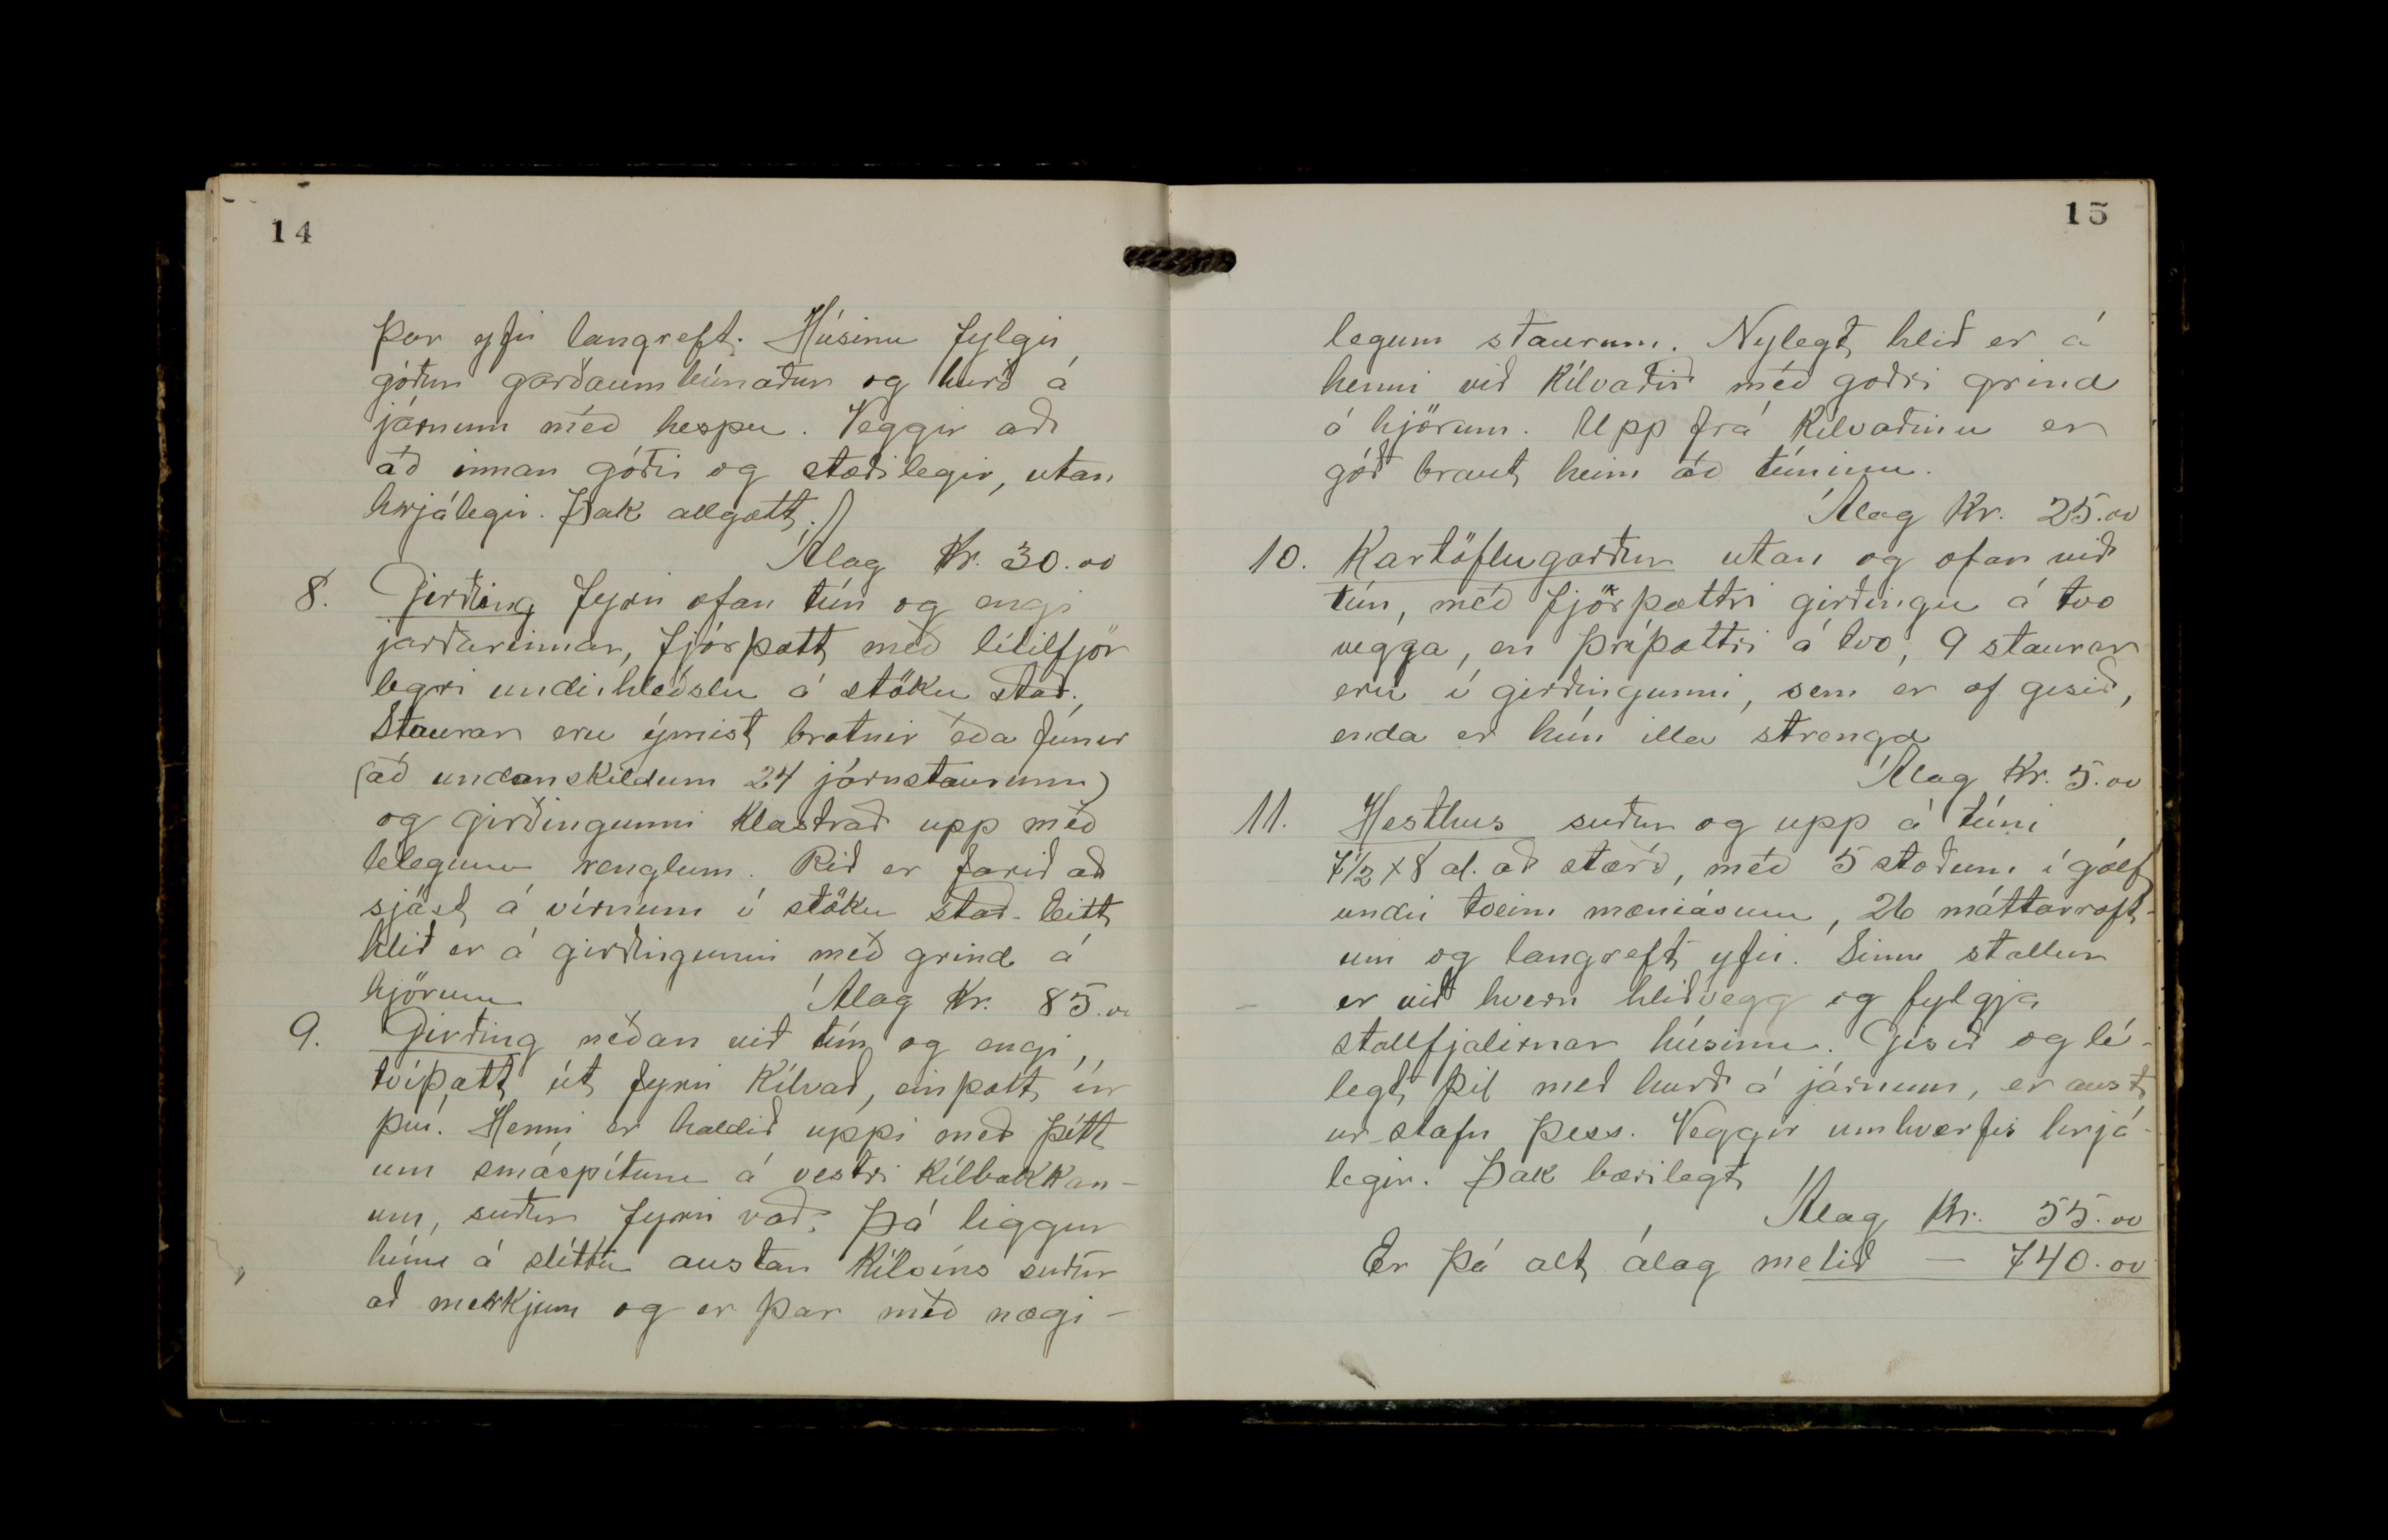 14
þar yfir langreft. Húsinu fylgir
góður garðaumbúnaður og hurð á
járnum með hespu. Veggir að
að innan góðir og stæðilegir, utan
hrjálegir. Þak allgott.
Álag Kr. 30.00
8. Girðing fyrir ofan tún og engi
jarðarinnar, fjórþætt með lítilfjör
legri undirhleðslu á stöku stað.
Staurar eru ýmist brotnir eða fúnir
(að undanskildum 24 járnstaurum)
og girðingunni klastrað upp með
lélegum renglum. Rið er farið að
sjást á vírnum í stöku stað. Eitt
hlið er á girðingunni með grind á
hjörum Álag Kr. 85.00
9. Girðing neðan við tún og engi,
tvíþætt út fyrir Kílvað, einþætt úr
því. Henni er haldið uppi með þétt
um smáspítum á vestri Kílbakkan-
um, suður fyrir vað. Þá liggur
hún á sléttu austan Kílsins suður
að merkjum og er þar með nægi-
15
legum staurum. Nýlegt hlið er á
henni við Kílvaðið með góðri grind
á hjörum. Upp frá Kílvaðinu er
góð braut heim að túninu.
Álag Kr. 25.00
10. Kartöflugarður utan og ofan við
tún, með fjórþættri girðingu á tvo
vegga, en þríþættri á tvo, 9 staurar
eru í girðingunni, sem er of gisið,
enda er hún illa strengd
Álag Kr. 5.00
11. Hesthus suður og upp á túni
7½ x 8 al. að stærð, með 5 stoðum í gólf
undir tveim mæniásum, 26 máttarraft-
um og langreft yfir. Sinn stallur
er við hvern hliðvegg og fylgja
stallfjalirnar húsinu. Gisið og lé-
legt þil með hurð á járnum, er aust
ur stafn þess. Veggir umhverfis hrjá-
legir. Þak bærilegt
Álag Kr. 55.00
Er þá alt álag metið — 740.00